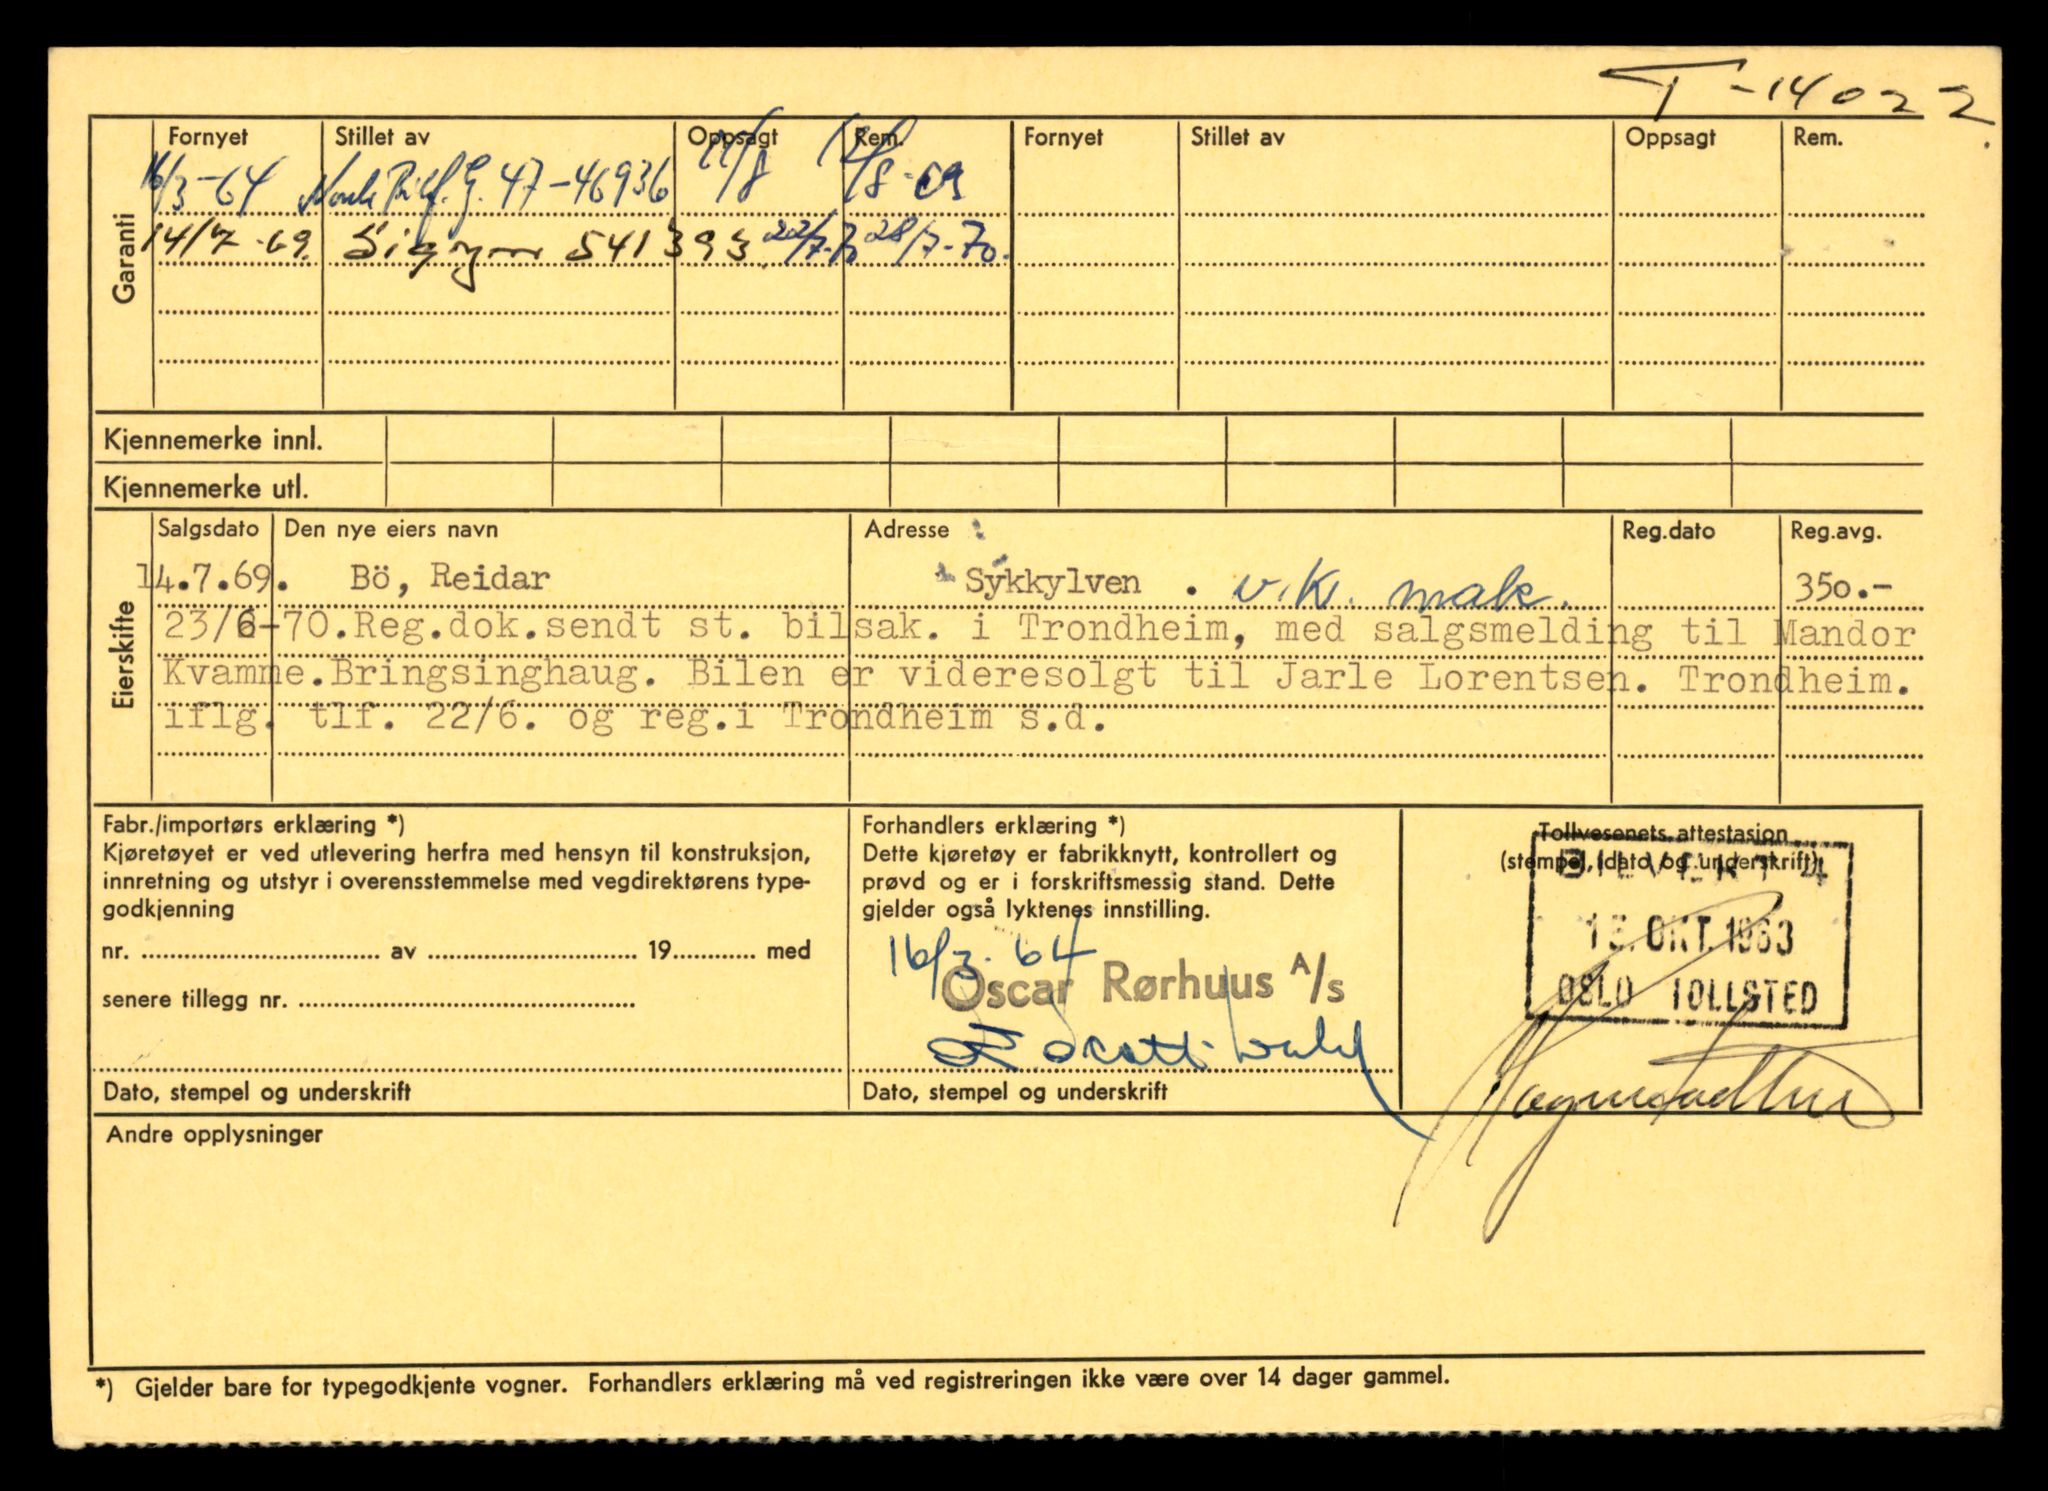 T-14022
Fornyet Stillet av Oppsagt Rem. Fornyet Stillet av Oppsagt Rem.
16/3-64 Norsk Bilf. G. 47-46936 /8 /8-69
14/7-69. Sigyn 541393 22/7-70 28/7-70.
Garanti
Kjennemerke innl.
Kjennemerke utl.
Salgsdato Den nye eiers navn Adresse Reg.dato Reg.avg.
14.7.69. Bö, Reidar Sykkylven . v.k. mak. 350.-
23/6-70.Reg.dok.sendt st. bilsak. i Trondheim, med salgsmelding til Mandor
Kvamme.Bringsinghaug. Bilen er videresolgt til Jarle Lorentsen. Trondheim.
iflg. tlf. 22/6. og reg.i Trondheim s.d.
Eierskifte
Fabr./importørs erklæring *)
Kjøretøyet er ved utlevering herfra med hensyn til konstruksjon,
innretning og utstyr i overensstemmelse med vegdirektørens type-
godkjenning
nr. av 19 med
senere tillegg nr.
Dato, stempel og underskrift
Forhandlers erklæring *)
Dette kjøretøy er fabrikknytt, kontrollert og
prøvd og er i forskriftsmessig stand. Dette
gjelder også lyktenes innstilling.
16/3. 64
Oscar Rørhuus A/s
Dato, stempel og underskrift
Tollvesenets attestasjon
(stempel, dato og underskrift)
OKT. 1963
OSLO TOLLSTED
Andre opplysninger
*) Gjelder bare for typegodkjente vogner. Forhandlers erklæring må ved registreringen ikke være over 14 dager gammel.